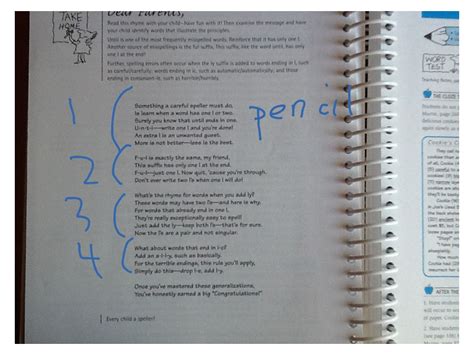 TAKE
HOME
Dear Parents,
Read this rhyme with your child—have fun with it! Then examine the message and have
your child identify words that illustrate the principles.
Until is one of the most frequently misspelled words. Reinforce that it has only one l.
Another source of misspellings is the ful suffix. This suffix, like the word until, has only
one l at the end.
Further, spelling errors often occur when the ly suffix is added to words ending in l, such
as careful/carefully; words ending in ic, such as automatic/automatically; and those
ending in consonant-le, such as horrible/horribly.
1
Something a careful speller must do,
Is learn when a word has one l or two.
Surely you know that until ends in one.
U-n-t-i-l—write one l and you're done!
An extra l is an unwanted guest.
More is not better—less is the best.
pencil
2
F-u-l is exactly the same, my friend,
This suffix has only one l at the end.
F-u-l—just one l. Now quit, 'cause you're through.
Don't ever write two l's when one l will do!
3
What's the rhyme for words when you add ly?
These words may have two l's—and here is why,
For words that already end in one l,
They're really exceptionally easy to spell!
Just add the ly—keep both l's—that's for sure.
Now the l's are a pair and not singular.
4
What about words that end in i-c?
Add an a-l-l-y, such as basically.
For the terrible endings, this rule you'll apply,
Simply do this—drop l-e, add l-y.
Once you've mastered these generalizations,
You've honestly earned a big "Congratulations!"
Every child a speller!
WORD
TEST
Teaching Notes,
THE CLOZE
Students do not
Cookie's C
They call m
AFTER THE
1. Have students